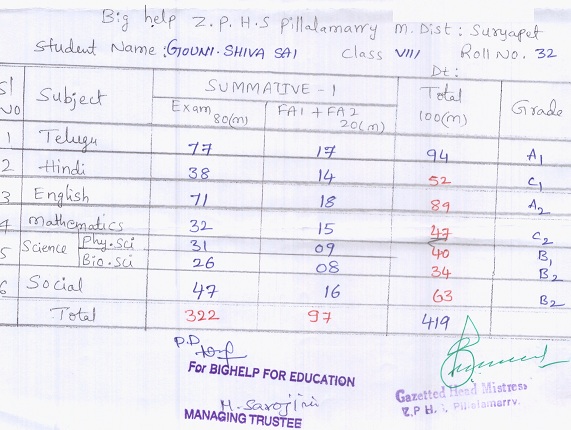 Big help Z.P.H.S Pillalamarry m. Dist : Suryapet
Student Name : GOUNI.SHIVA SAI Class VIII Roll No. 32
Dt:
Sl No Subject SUMMATIVE - 1 Total 100(m) Grade
Exam 80(m) FA1 + FA2 20(m)
1 Telugu 77 17 94 A1
2 Hindi 38 14 52 C1
3 English 71 18 89 A2
4 mathematics 32 15 47 C2
5 Science Phy.sci 31 09 40 B1
Bio.sci 26 08 34 B2
6 Social 47 16 63 B2
Total 322 97 419
P.D
For BIGHELP FOR EDUCATION
H. Sarojini
MANAGING TRUSTEE
Gazetted Head Mistress
Z.P.H. Pillalamarry.